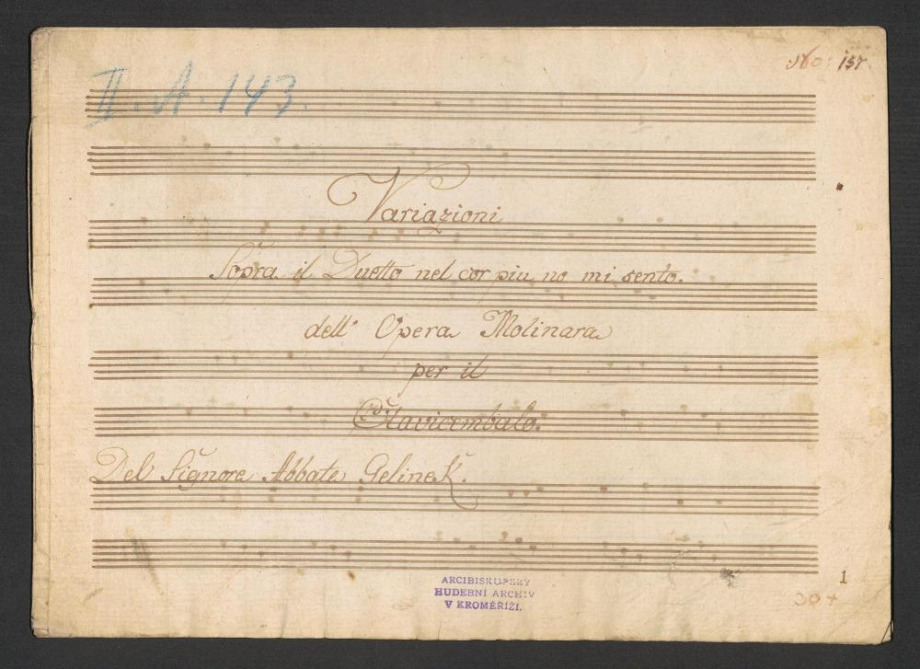 II. A. 143.
No: 137.
Variazioni
Sopra il Duetto nel cor piu no mi sento.
dell' Opera Molinara
per il
Clavicembalo.
Del Signore Abbate Gelinek.
ARCIBISKUPSKÝ
HUDEBNÍ ARCHIV
V KROMĚŘÍŽI.
1